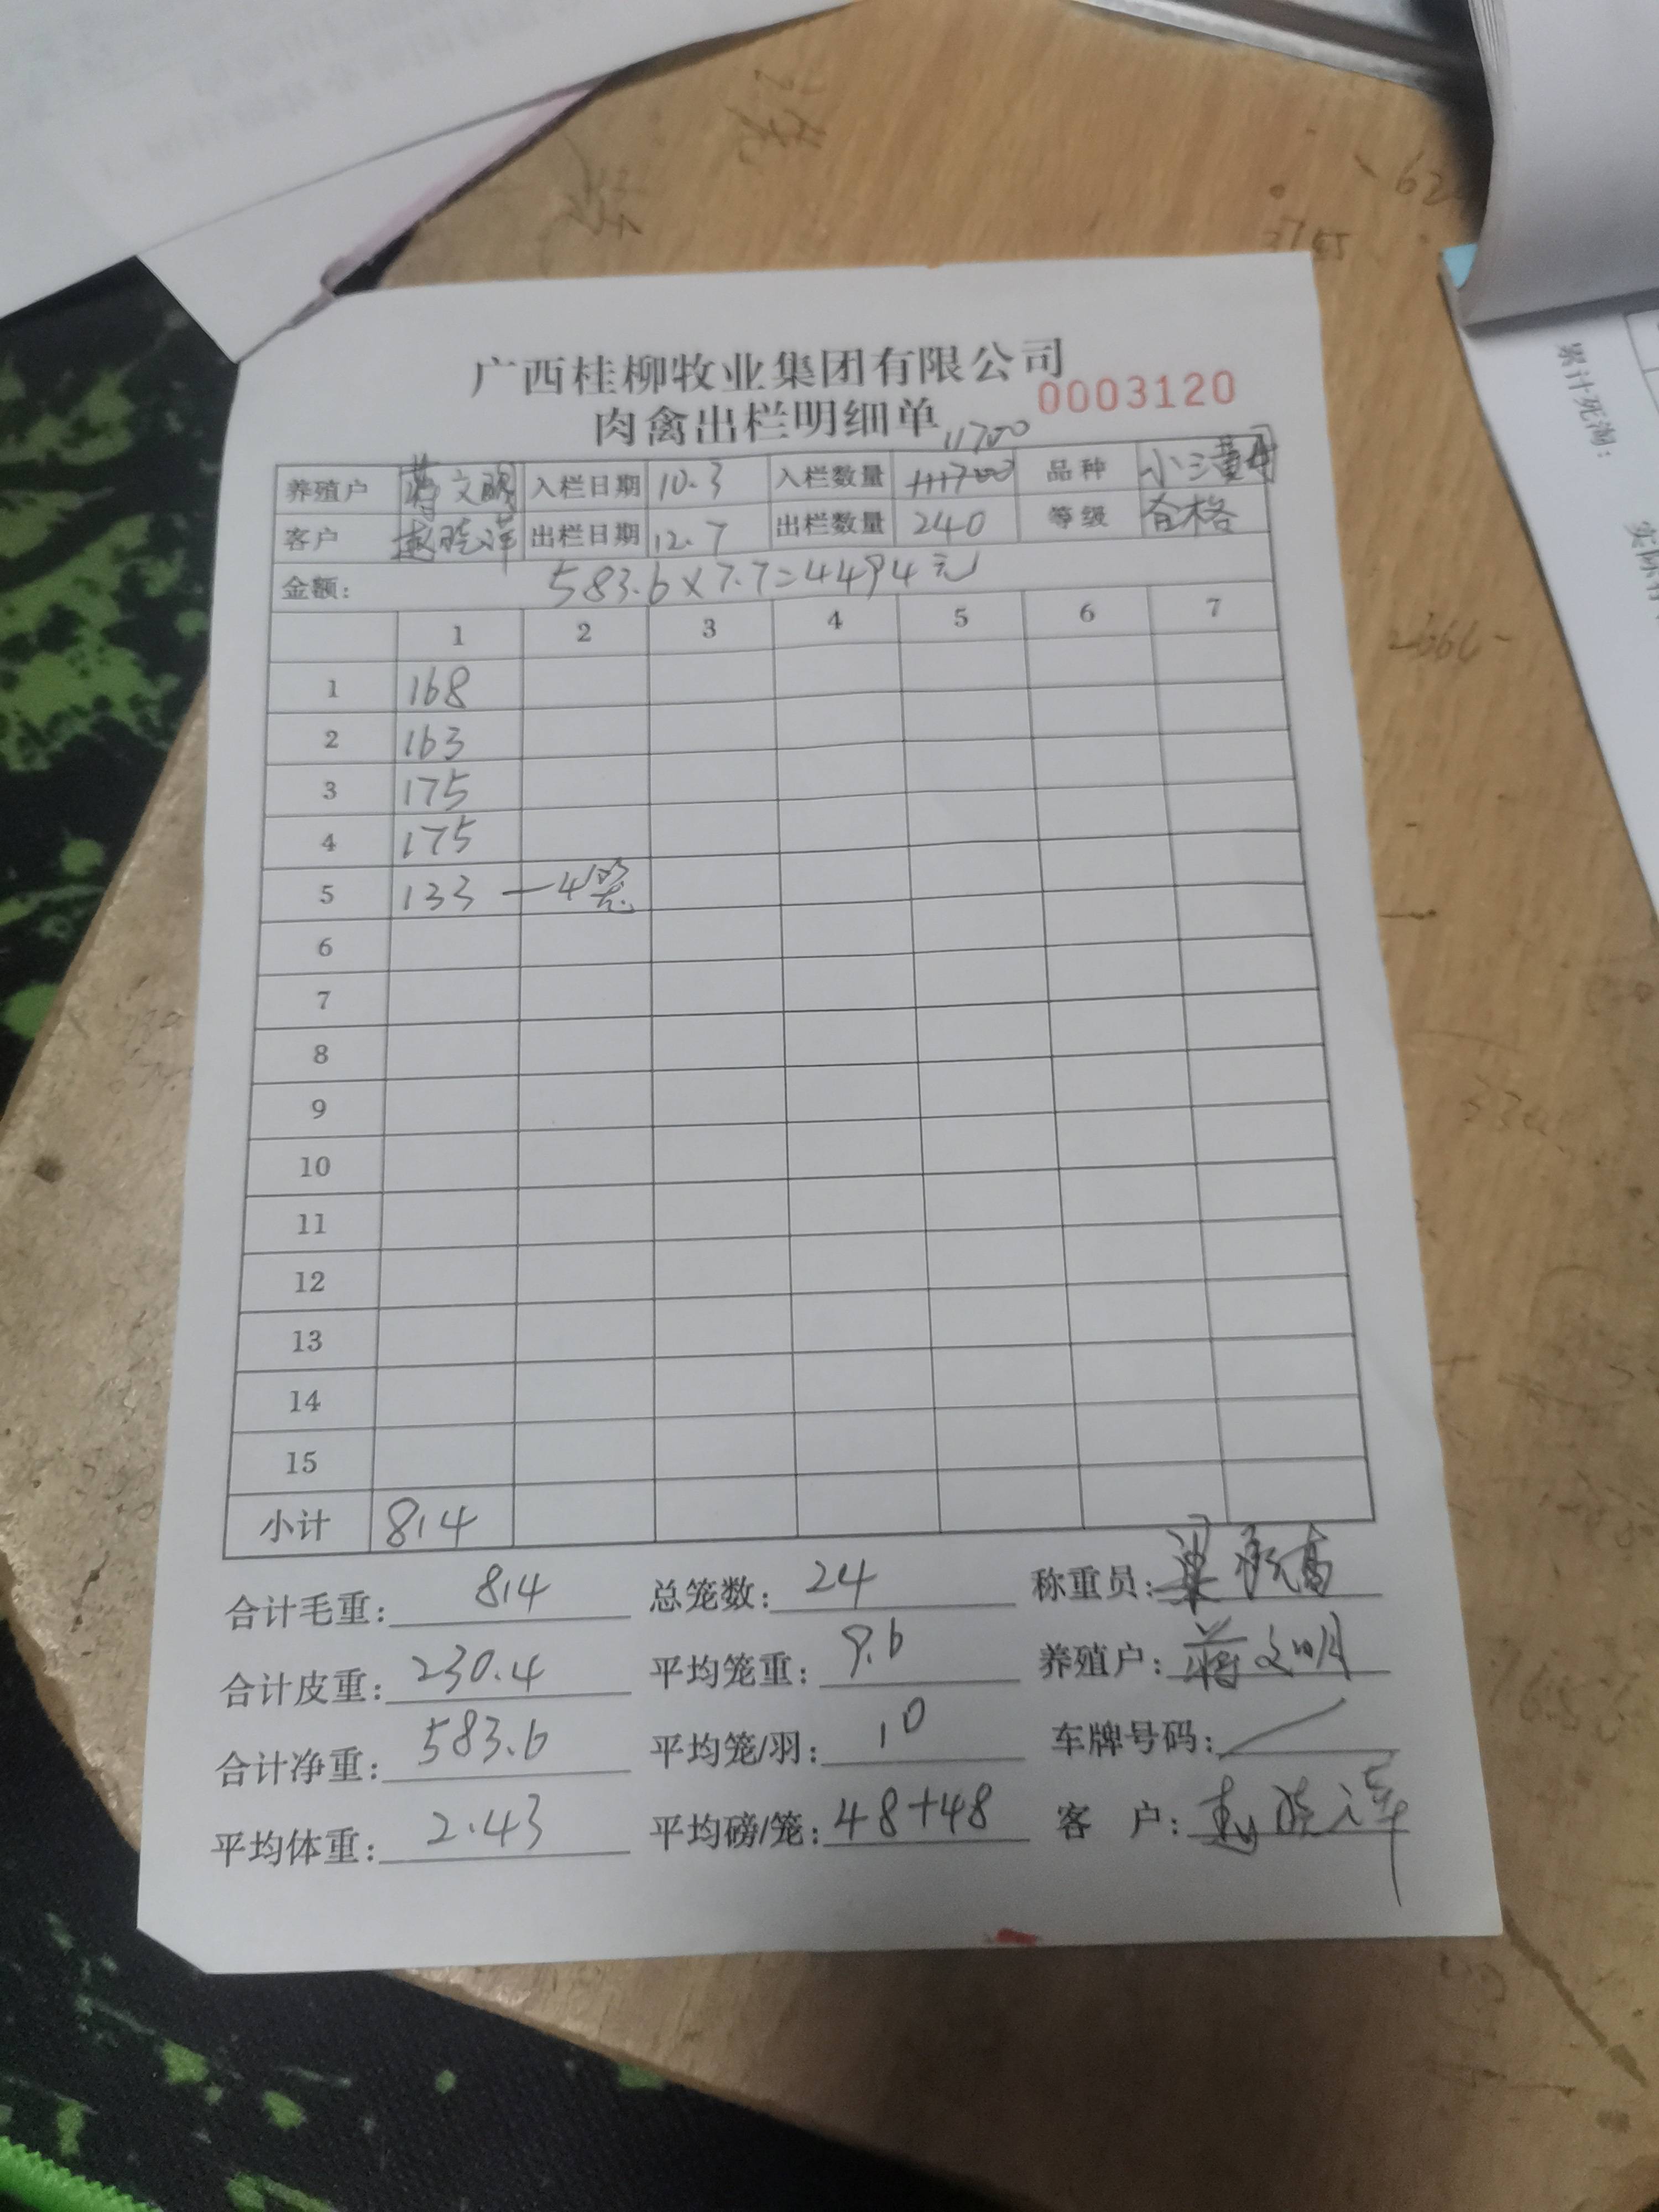 广西桂柳牧业集团有限公司
肉禽出栏明细单
0003120
11700
养殖户 蒋文明 入栏日期 10.3 入栏数量 品种 小三黄
客户 赵晓洋 出栏日期 12.7 出栏数量 240 等级 合格
金额: 583.6×7.7=4494元
1 2 3 4 5 6 7
1 168
2 163
3 175
4 175
5 133 —4笼
6
7
8
9
10
11
12
13
14
15
小计 814
合计毛重: 814 总笼数: 24 称重员: 梁
合计皮重: 230.4 平均笼重: 9.6 养殖户: 蒋文明
合计净重: 583.6 平均笼/羽: 10 车牌号码: /
平均体重: 2.43 平均磅/笼: 48+48 客 户: 赵晓洋
累计死淘: